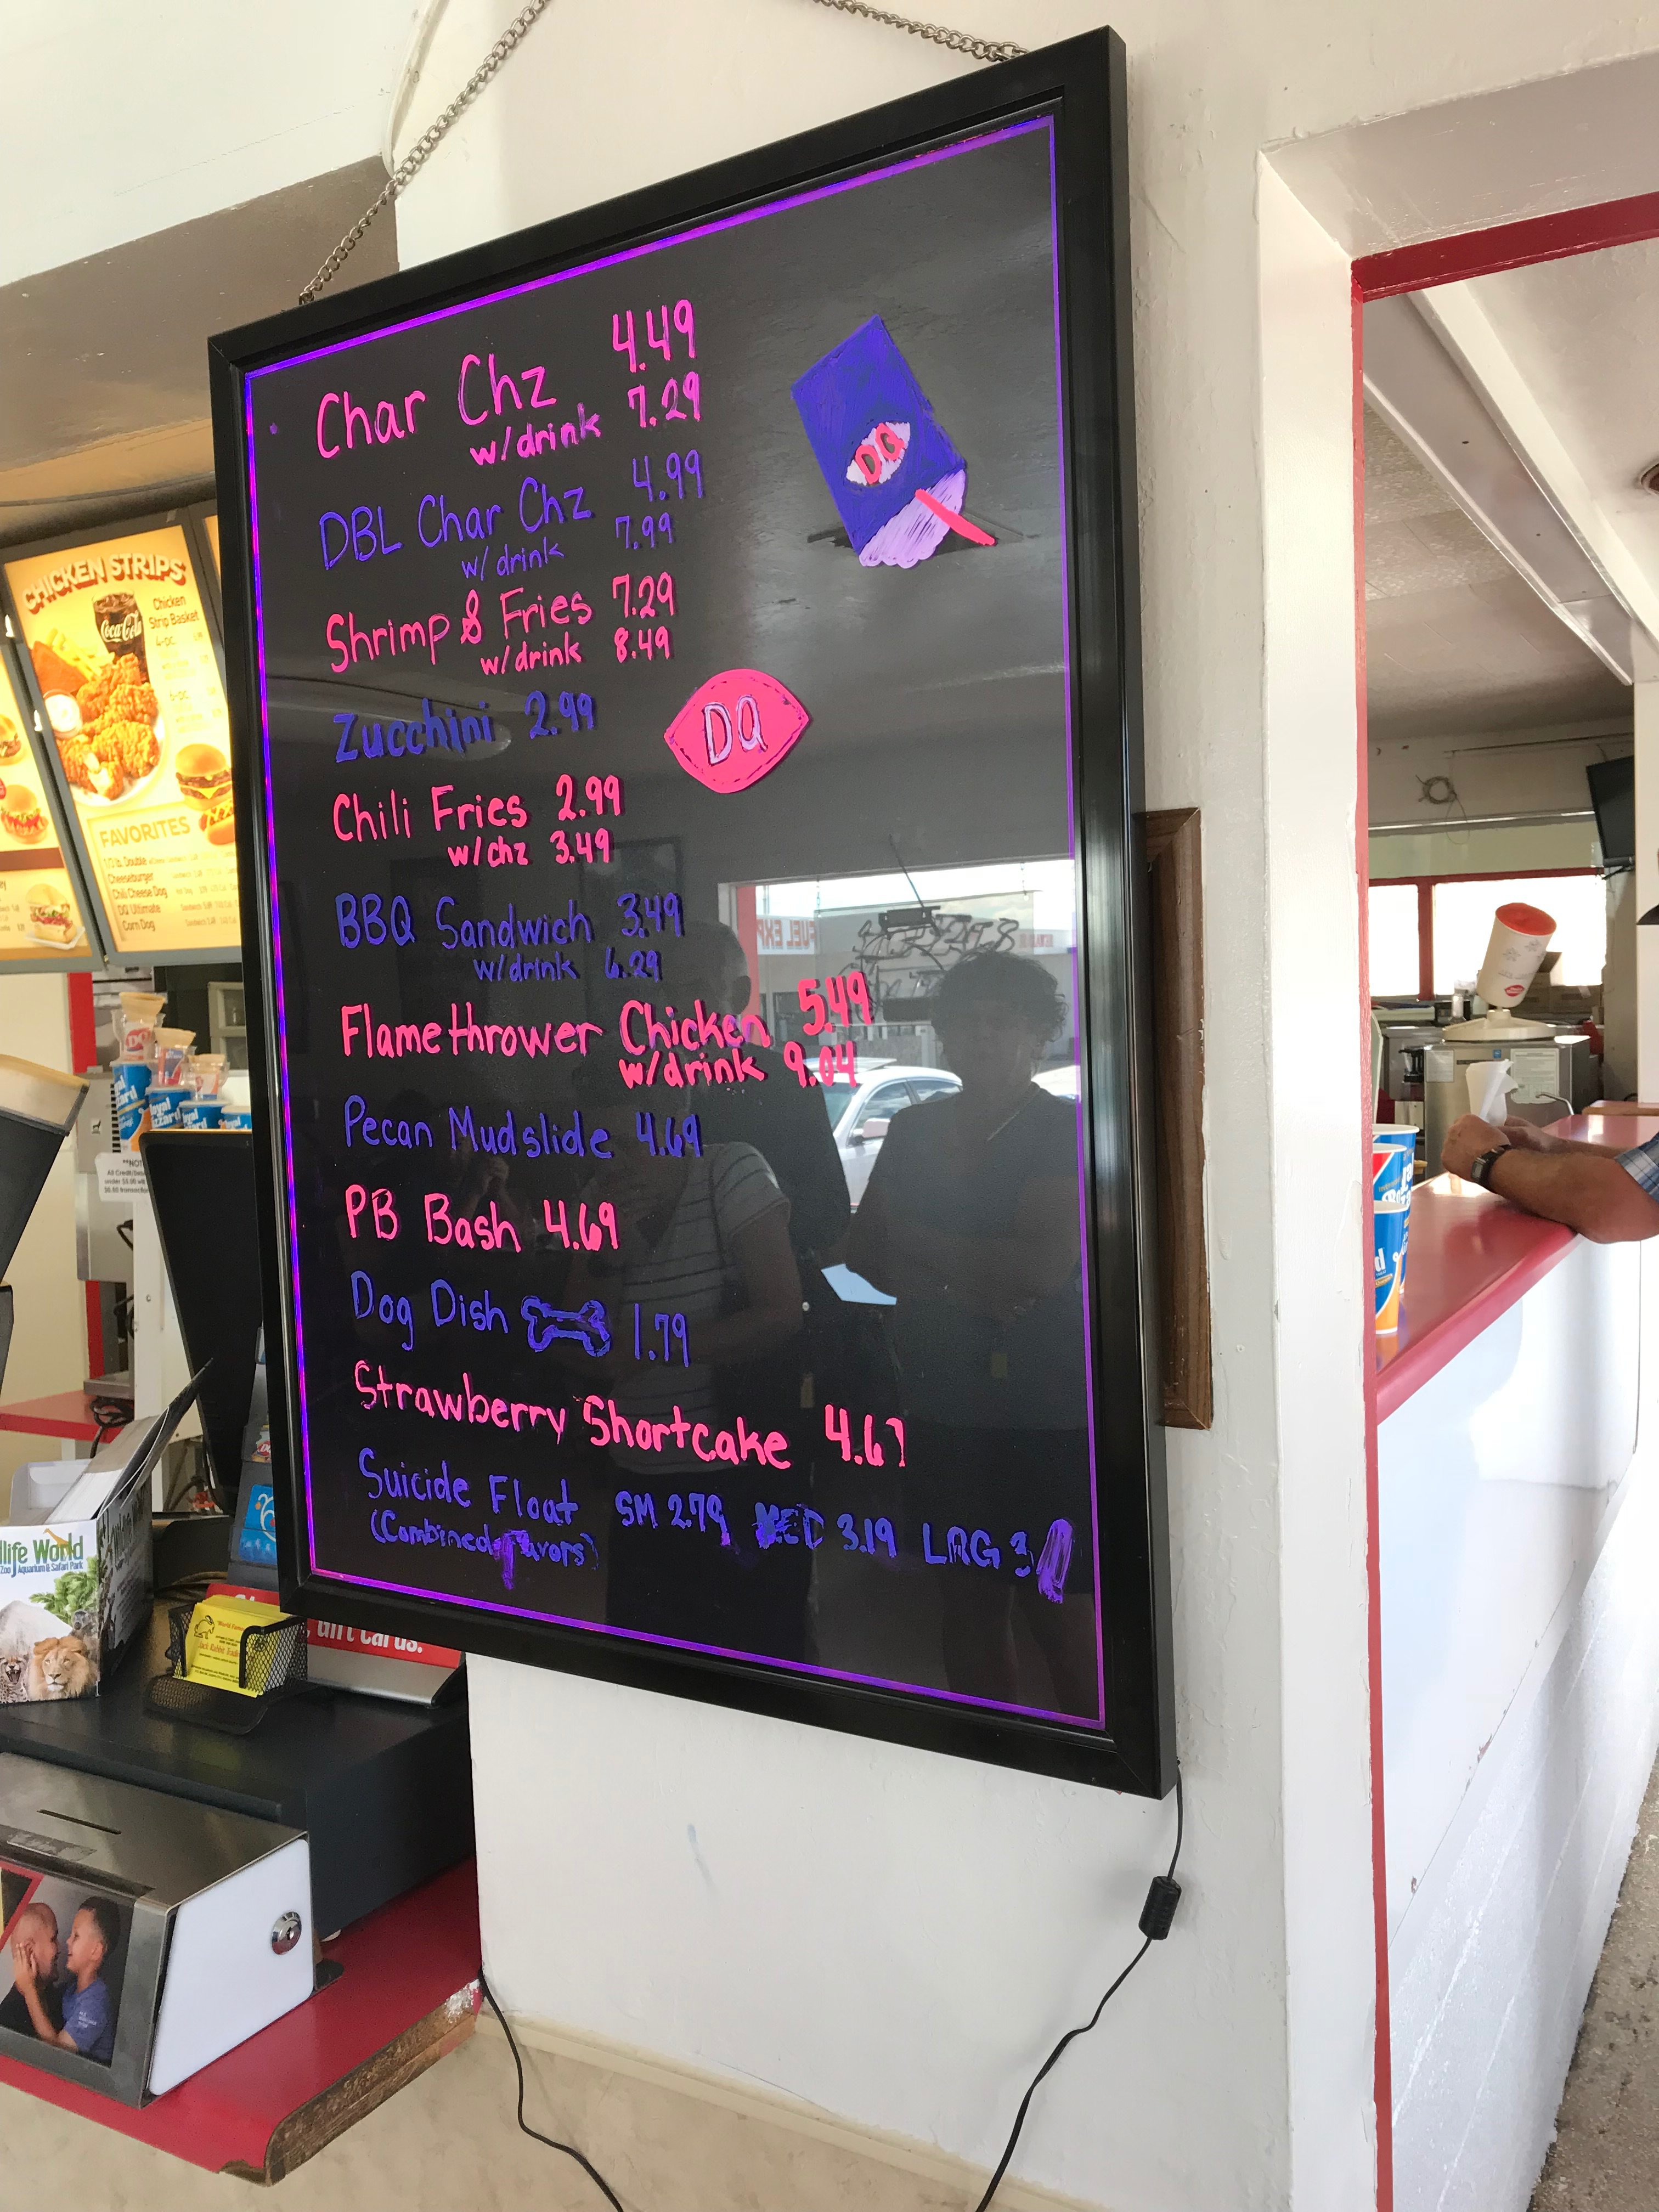 Char Chz 4.49
w/drink 7.29
DBL Char Chz 4.99
w/drink 7.99
Shrimp & Fries 7.29
w/drink 8.49
Zucchini 2.99
Chili Fries 2.99
w/chz 3.49
BBQ Sandwich 3.49
w/drink 6.29
Flamethrower Chicken 5.49
w/drink 9.04
Pecan Mudslide 4.69
PB Bash 4.69
Dog Dish 1.79
Strawberry Shortcake 4.69
Suicide Float SM 2.79 MED 3.19 LRG 3
(Combined
DQ
DQ
CHICKEN STRIPS
Chicken
Strip Basket
4-pc.
6-pc.
Coca-Cola
FAVORITES
1/2 lb. Double
Cheeseburger
Chili Cheese Dog
DQ Ultimate
Corn Dog
life World
Zoo Aquarium & Safari Park
Gift Cards.
FUEL EXP